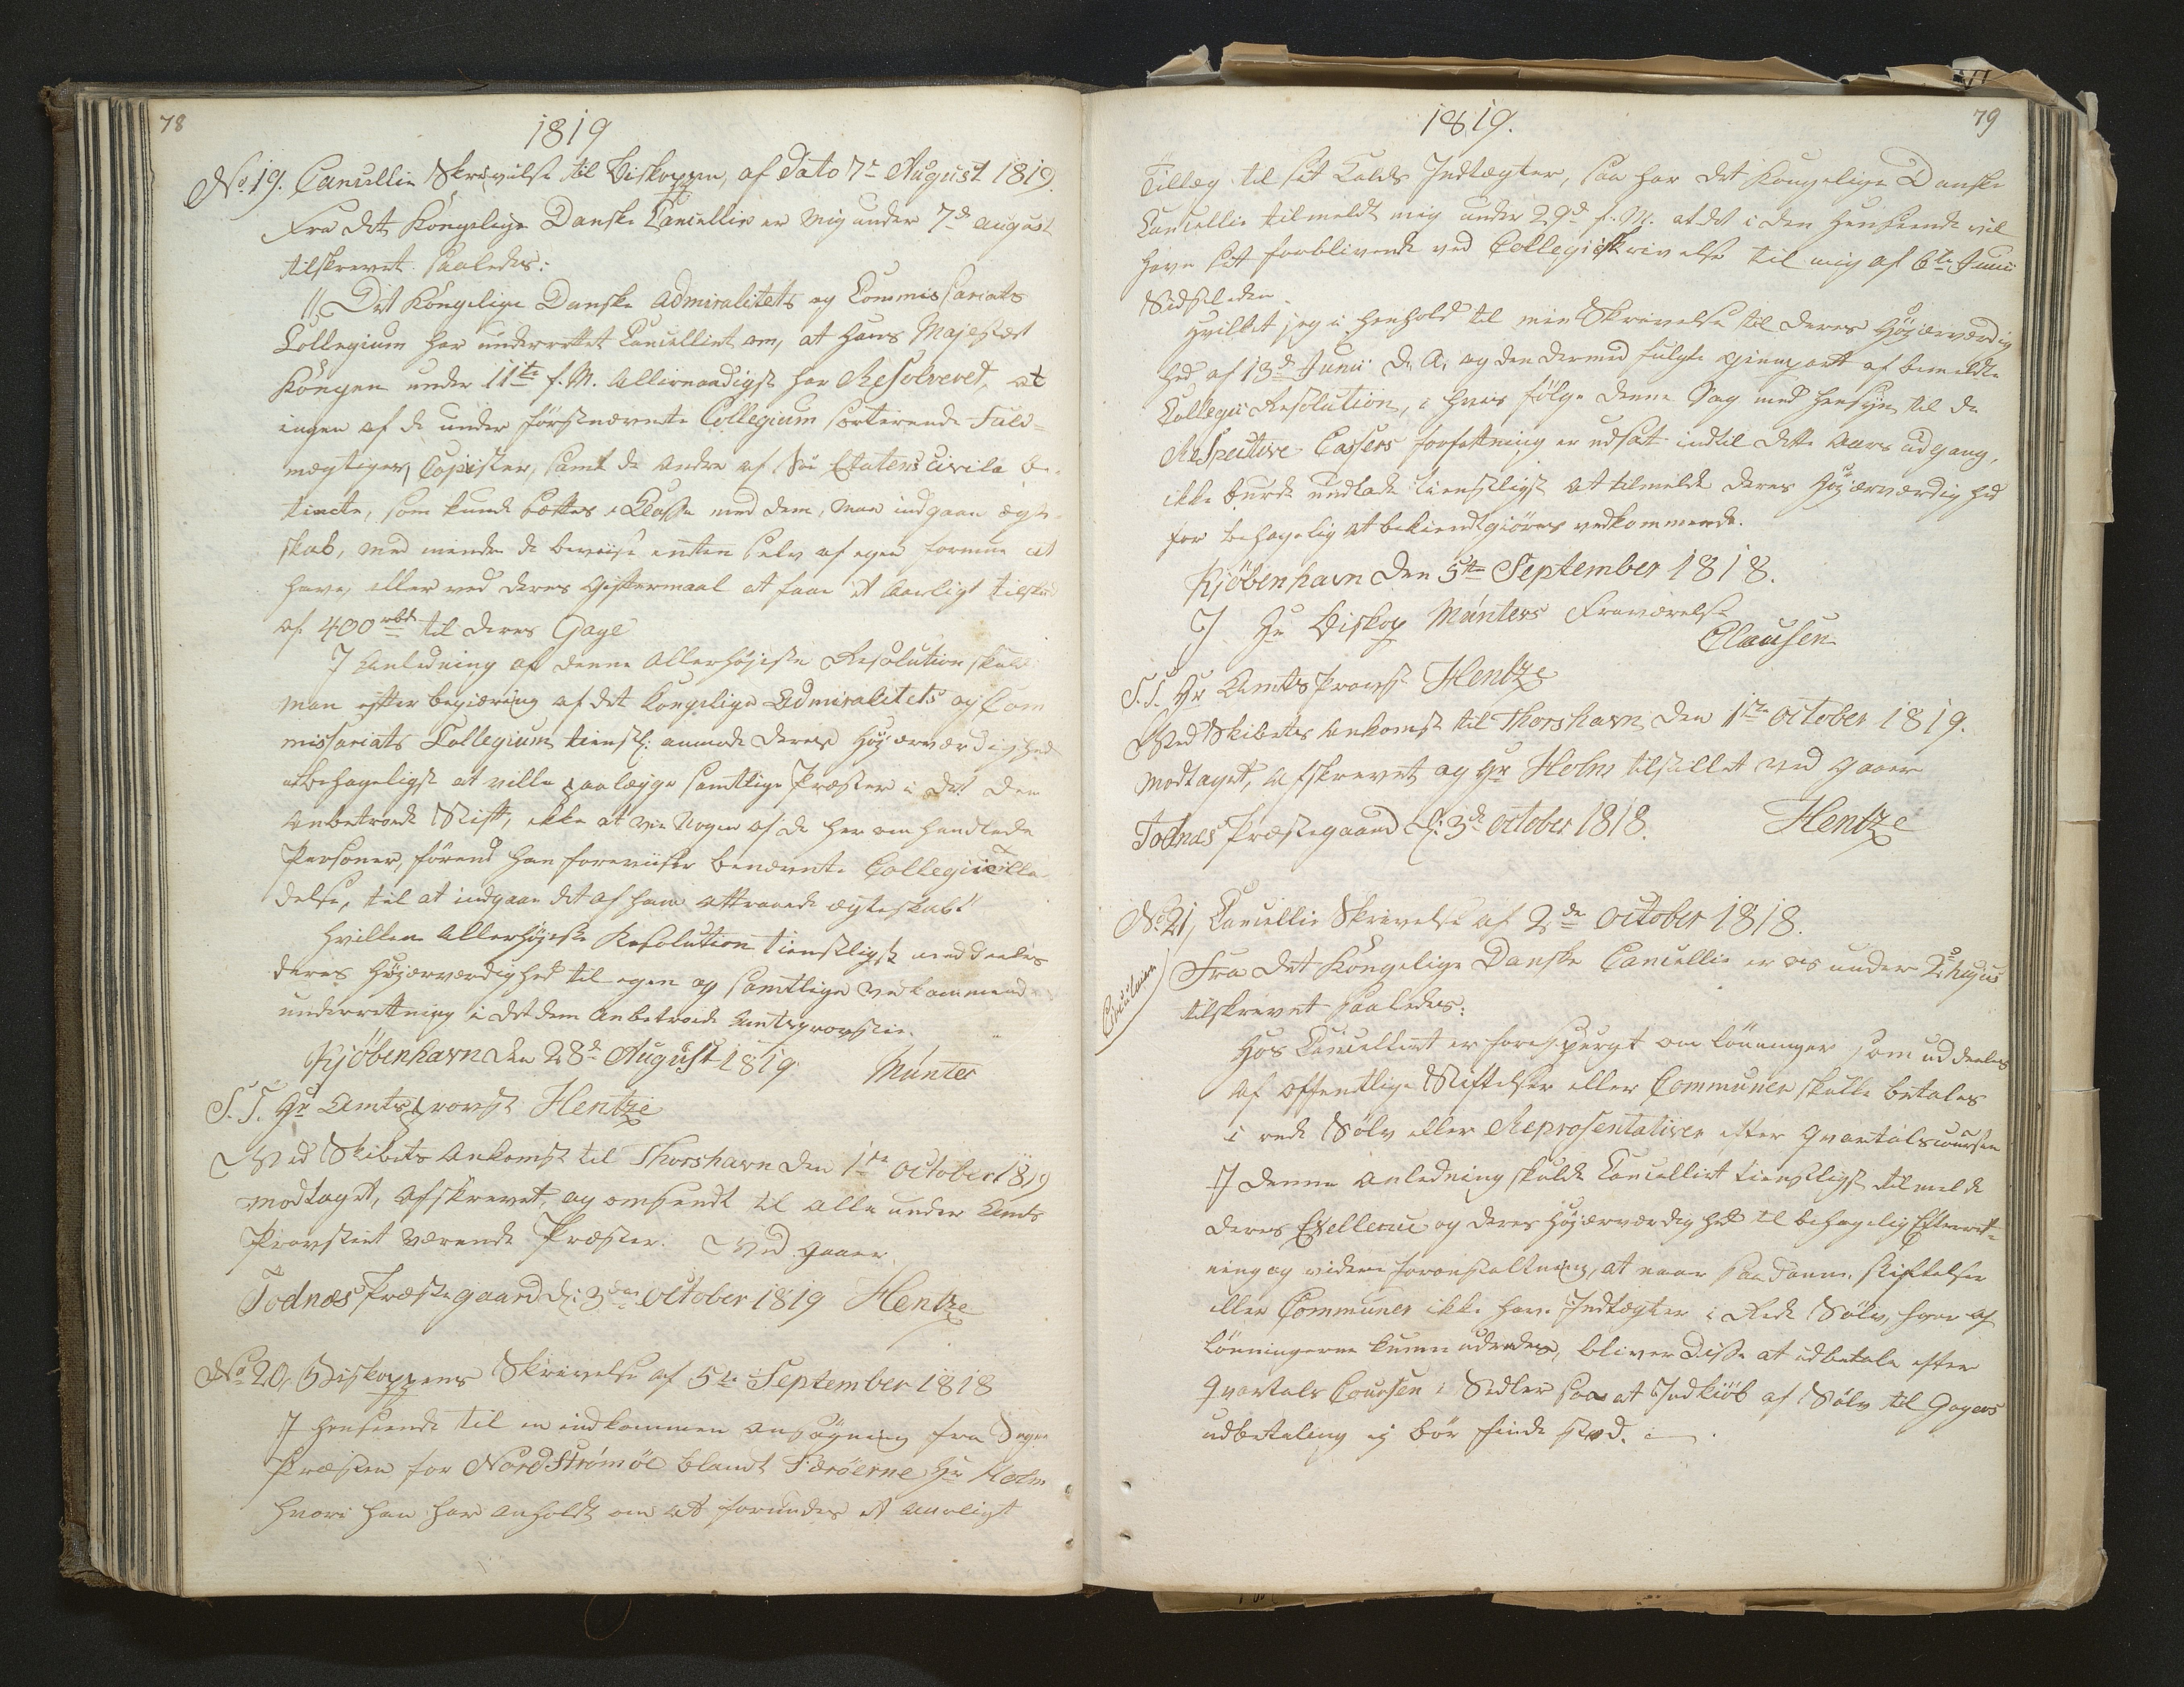 78
1819
No 19. Cancellie Skrivelse til Biskoppen, af Dato 7de August 1819.
Fra det Kongelige Danske Cancellie er mig under 7de August
tilskrevet saaledes:
"Det Kongelige Danske Admiralitets og Commissariats
Collegium har underrettet Cancelliet om, at Hans Majestæt
Kongen under 11te f. M. Allernaadigst har Resolveret, at
ingen af de under førstnævnte Collegium sorterende Fuld-
mægtiger, Copister, samt de andre af Søe Etatens civile be-
tiente, som kunde sættes i Classe med dem, maa indgaae ægte-
skab, med mindre de beviise enten selv af egen formue at
have, eller ved deres Giftermaal at faae et Aarligt tilskud
af 400 rbd til deres Gage
I Anledning af denne Allerhøjeste Resolution skulde
man efter begiæring af det Kongelige Admiralitets og Com
missariats Collegium tienstl: anmode Deres Højærværdighed
behageligst at ville paalægge samtlige Præster i det Dem
Anbetroede Stift, ikke at vie Nogen af de her omhandlede
Personer, førend han foreviser benævnte Collegii tilla-
delse, til at indgaae det af ham attraaede ægteskab."
Hvilken Allerhøjeste Resolution tienstligst meddeeles
Deres Højærværdighed til egen og samtlige Vedkommendes
underretning i det dem Anbetroede Amtsprovstie.
Kjöbenhavn den 28de August 1819 Münter
S. T. Hr Amtsprovst Hentze
Ved Skibets Ankomst til Thorshavn den 1ste October 1819
modtaget, Afskrevet, og omsendt til alle under Amts
Provstiet værende Præster. Ved Gaaer
Todnæs Præstegaard d: 3die October 1819 Hentze
No 20, Biskoppens Skrivelse af 5te September 1818
I henseende til en indkommen ansøgning fra Sogne
Præsten for Nord Strömöe blandt Færöerne Hr Holm
hvori han har anholdt om at forundes et aarligt
79
1819.
Tillæg til sit Kalds Indtægter, saa har det Kongelige Danske
Cancellie tilmeldt mig under 29de f. M. at det i den Henseende vil
have sit forblivende ved Collegii Skrivelse til mig af 6te Junii
Sidstleden.
Hvilket jeg i henhold til min Skrivelse til Deres Højærværdig
hed af 13de Junii d. A. og den dermed fulgte Gienpart af bemeldte
Collegii Resolution, i hvis følge denne Sag med hensyn til de
Respective Cassers forfatning er udsat indtil dette Aars udgang,
ikke burde undlade tienstligst at tilmelde Deres Højærværdighed
for behagelig at bekiendtgiøres vedkommende.
Kjöbenhavn den 5te September 1818.
I Hr Biskop Münters Fraværelse
Clausen
S. T. Hr Amts Provst Hentze
Ved Skibets Ankomst til Thorshavn den 1ste October 1819.
Modtaget, Afskrevet og Hr Holm tilstillet Ved Gaaer
Todnæs Præstegaard d: 3de October 1818. Hentze
No 21, Cancellie Skrivelse af 2den October 1818.
Circulaire
Fra det Kongelige Danske Cancellie er os under 2d hujus
tilskrevet saaledes:
Hos Cancelliet er forespurgt om lønninger som uddeeles
af offentlige Stiftelser eller Communer skulle betales
i rede Sølv eller Repræsentativer efter Qvartalscoursen
I denne anledning skulde Cancelliet tienstligst tilmelde
Deres Excellence og Deres Højærværdighed til behagelig Efterret-
ning og videre foranstaltning, at naar saadanne Stiftelser
eller Communer ikke have Indtægter i Rede Sølv, hvor af
Lønningerne kunne udredes, bliver disse at udbetale efter
Qvartals Coursen i Sedler saa at Indkiøb af Sølv til Gagers
udbetaling ej bør finde sted.